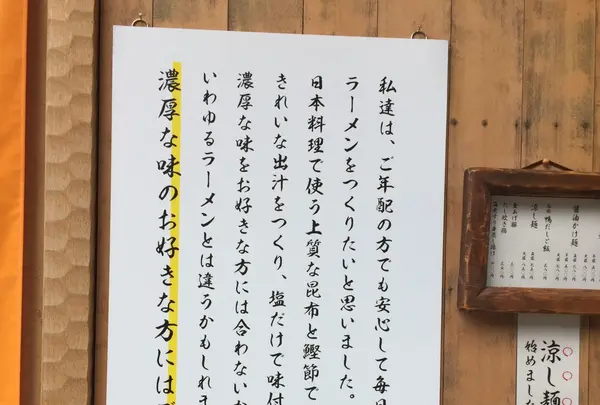 私達は、ご年配の方でも安心して毎
ラーメンをつくりたいと思いました。
日本料理で使う上質な昆布と鰹節で
きれいな出汁をつくり、塩だけで味付
濃厚な味をお好きな方には合わない
いわゆるラーメンとは違うかもしれ
濃厚な味のお好きな方には
醤油かけ麺
鴨だしご飯
涼し麺
涼し麺
始めました